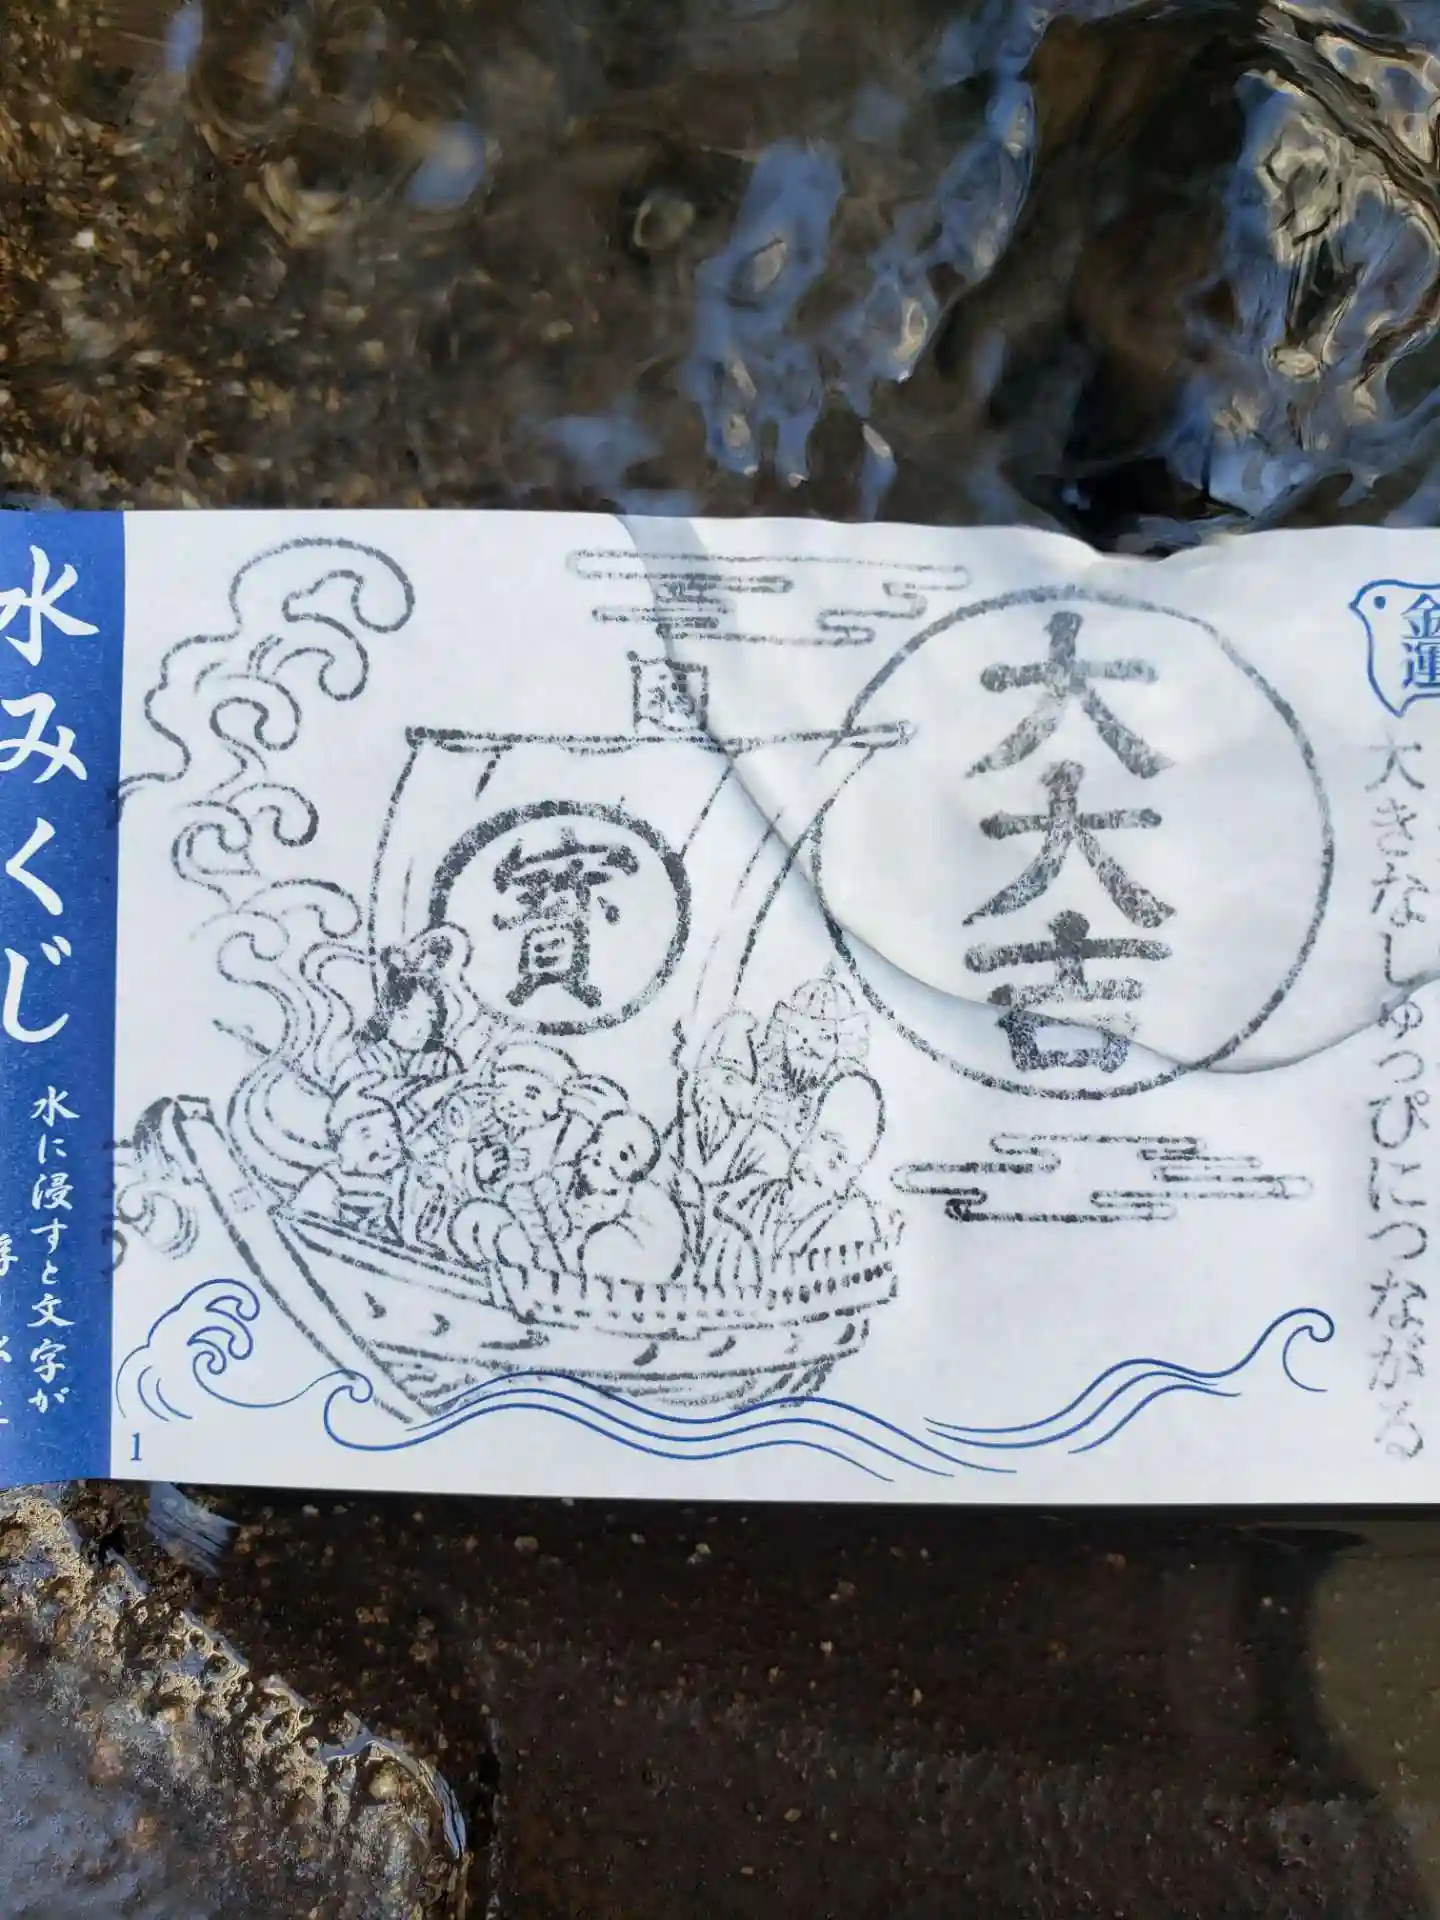 水みくじ
水に浸すと文字が
1
寶
大大吉
金運
大きなしゅっぴにつながる